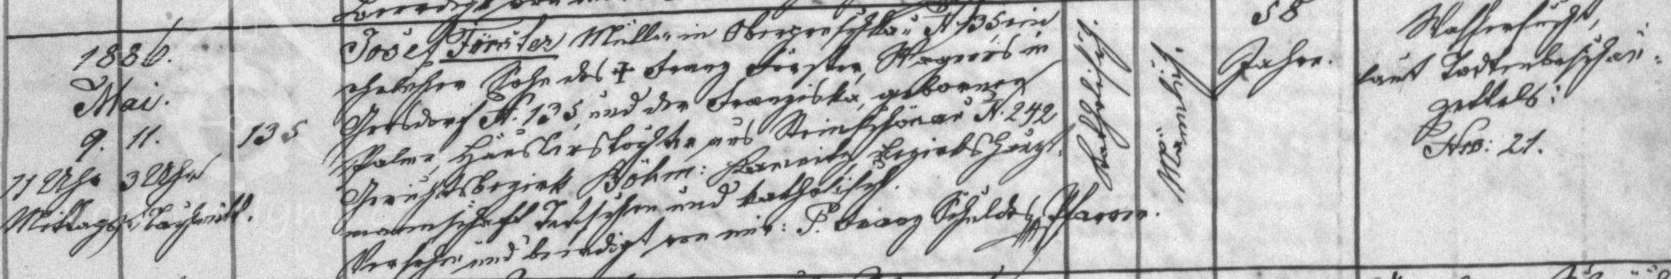 1886.
Mai.
9. 11.
11 Uhr 3 Uhr
Mittags Nachmitt.
135
Josef Förster Müller in Oberpreschkau N 135 ein
ehelicher Sohn des † Franz Förster, Wagners in
Gersdorf N. 135 und der Franziska, geborene
Palme Häuslerstochter aus Steinschönau N. 242
Gerichtsbezirk Böhm: Kamnitz Bezirkshaupt-
mannschaft Tetschen und katholisch.
Versehen und beerdigt von mir: P. Franz Schuldes Pfarrer.
Katholisch.
Männlich.
58
Jahre.
Wassersucht,
laut Todtenbeschau-
zettels:
Nro: 21.